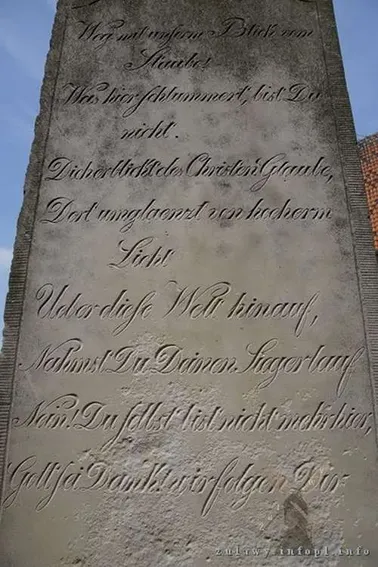 Weg mit unserm Blick vom
Staube!
Was hier schlummert, bist Du
nicht.
Dich erblickt des Christen Glaube,
Dort umglaenzt von hoeherm
Licht
Ueber diese Welt hinauf,
Nahmst Du Deinen Siegerlauf
Nein! Du selbst bist nicht mehr hier,
Gott sei Dank! wir folgen Dir
zulawy.infopl.info